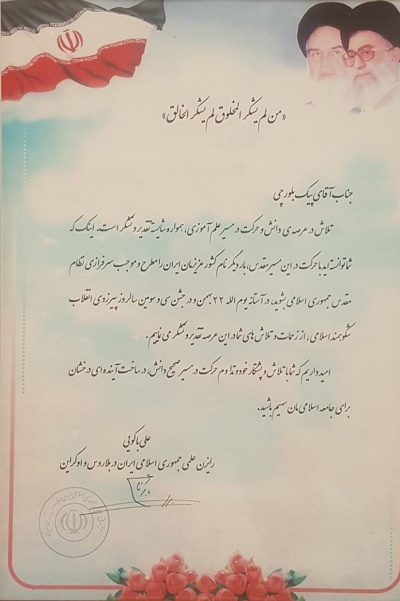 «من لم یشکر المخلوق لم یشکر الخالق»
جناب آقای پیک بلورچی
تلاش در عرصه ی دانش و حرکت در مسیر علم آموزی، همواره شایسته تقدیر و تشکر است. اینک که
شما توانسته اید با حرکت در این مسیر مقدس، بار دیگر نام کشور عزیزمان ایران را مطرح و موجب سرفرازی نظام
مقدس جمهوری اسلامی شوید، در آستانه یوم الله ۲۲ بهمن و در جشن سی و سومین سالروز پیروزی انقلاب
شکوهمند اسلامی، از زحمات و تلاش های شما در این عرصه تقدیر و تشکر می نمایم.
امید داریم که شما با تلاش و پشتکار خود و تداوم حرکت در مسیر صحیح دانش، در ساخت آینده ای درخشان
برای جامعه اسلامی مان سهیم باشید.
علی باکویی
رایزن علمی جمهوری اسلامی ایران در بلاروس و اوکراین